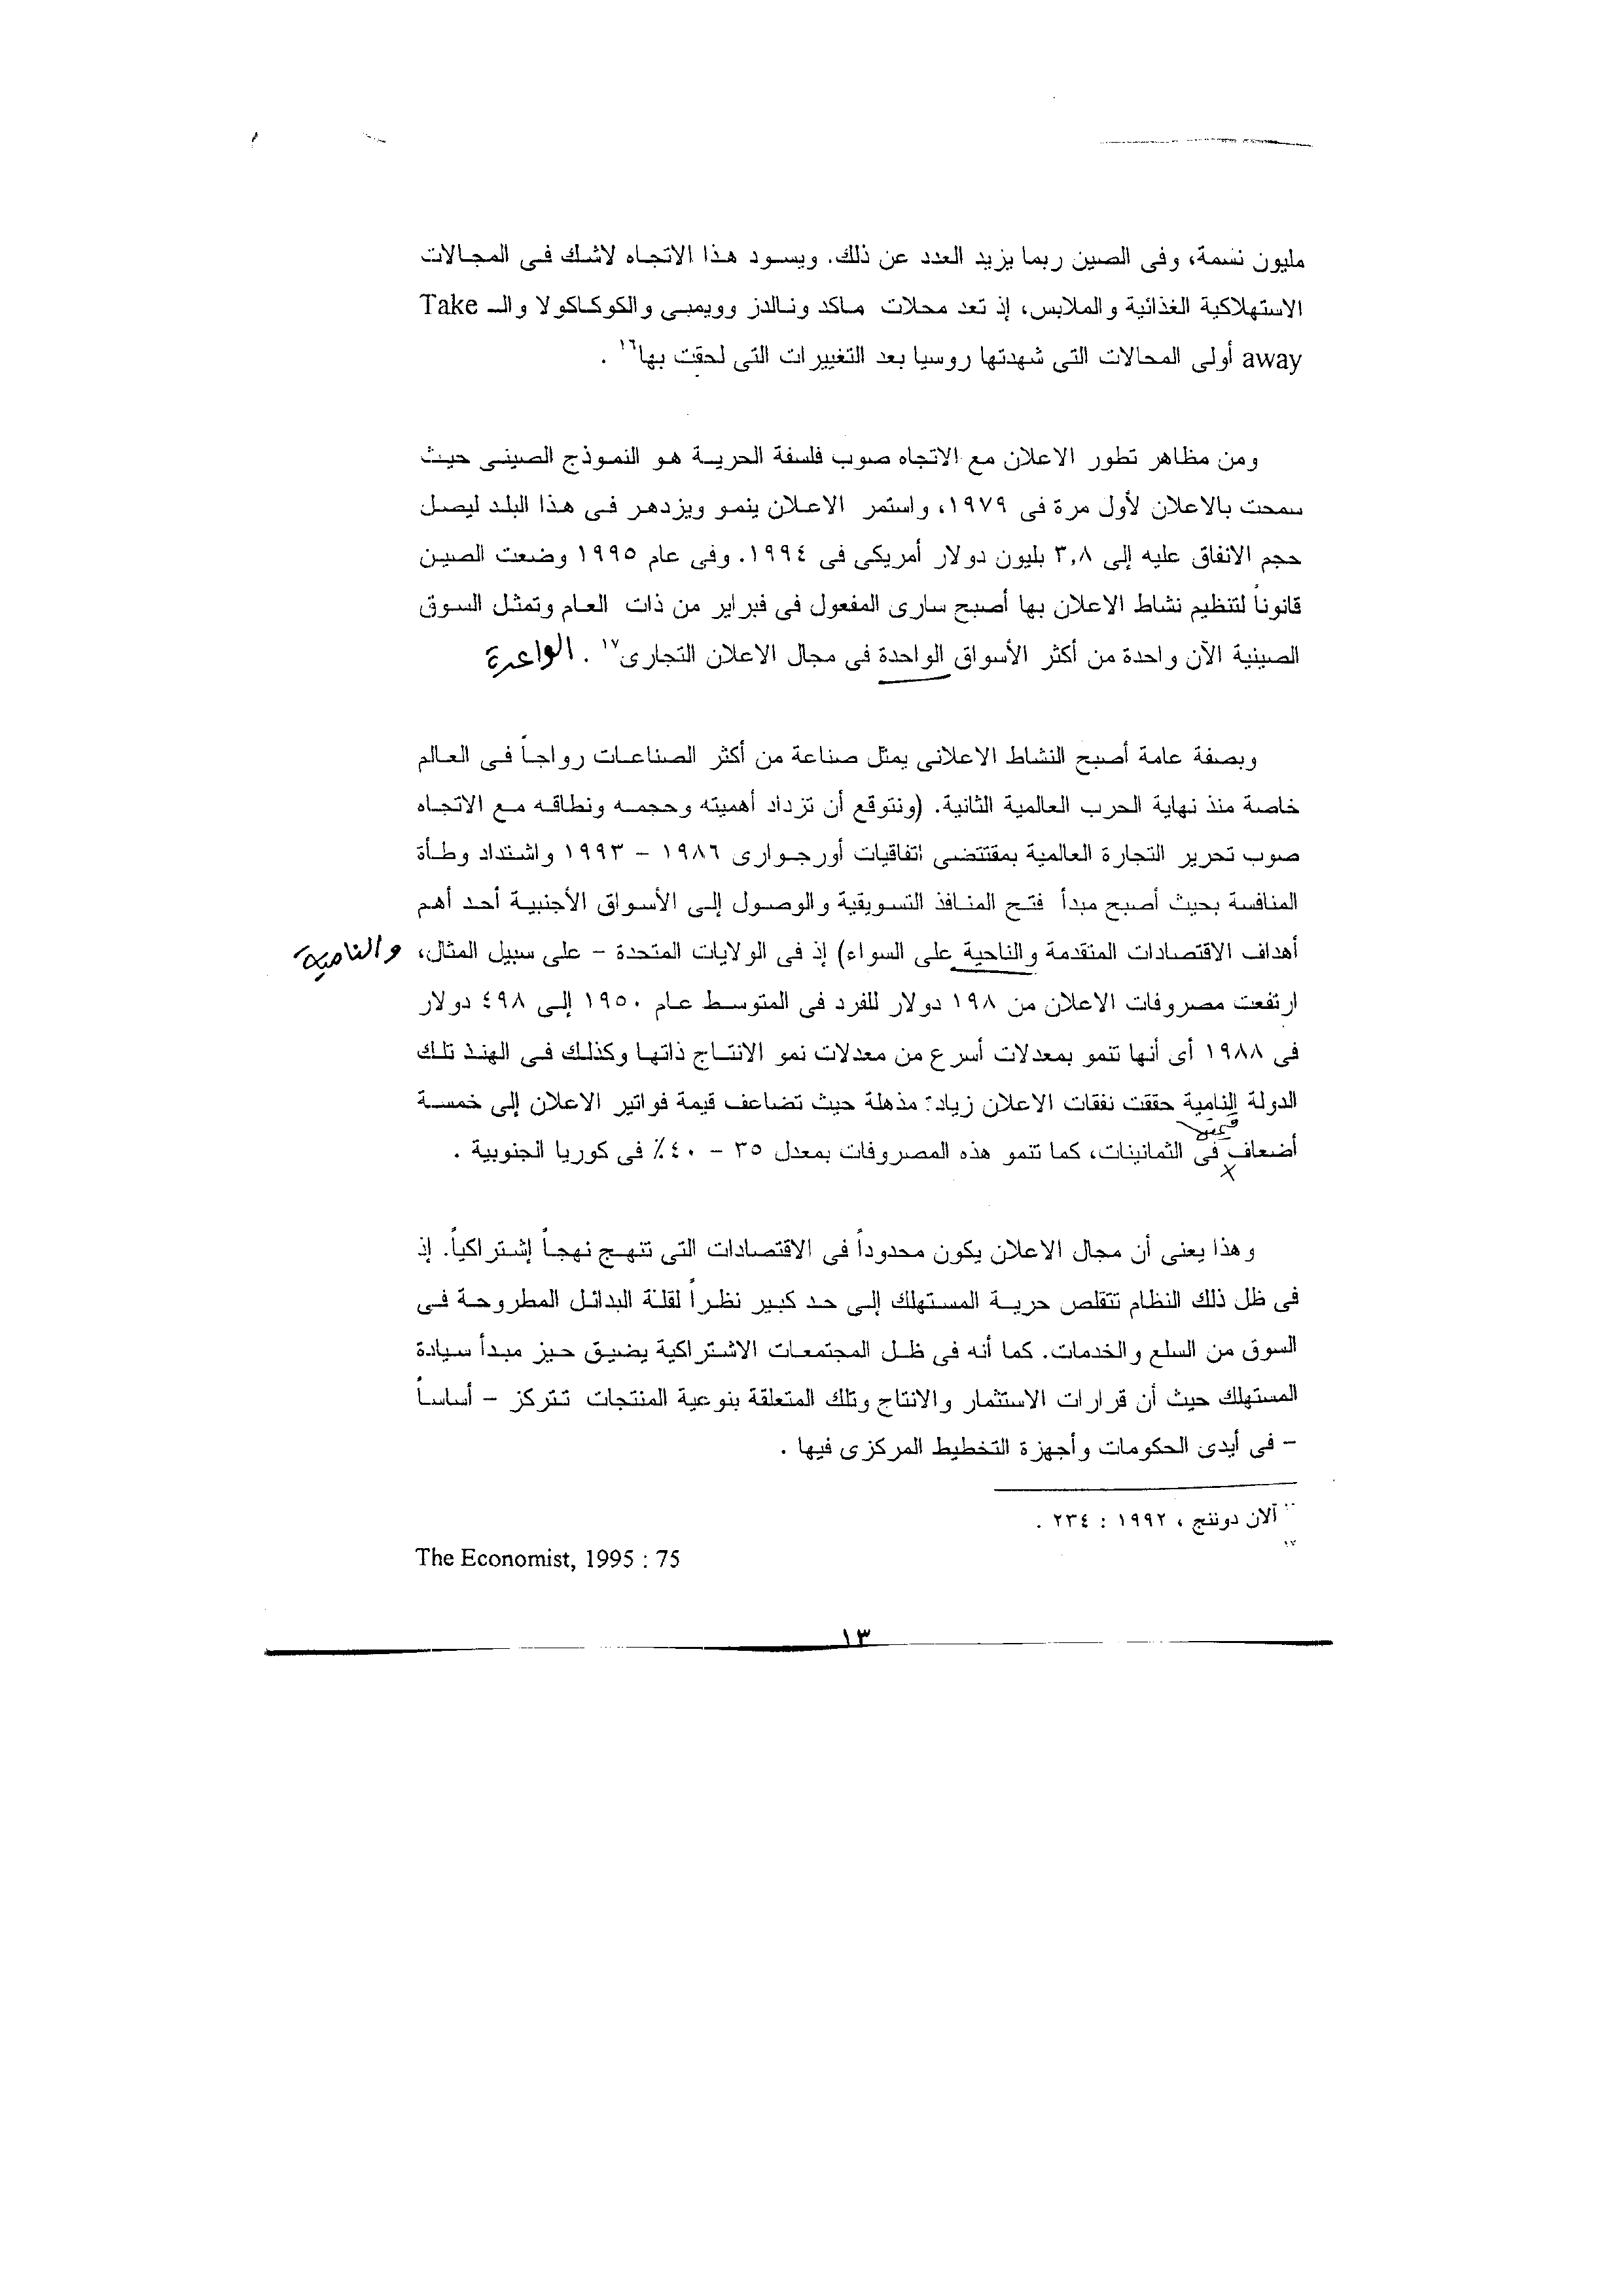 مليون نسمة، وفى الصين ربما يزيد العدد عن ذلك. ويسود هذا الاتجاه لاشك فى المجالات
الاستهلاكية الغذائية والملابس، إذ تعد محلات ماكد ونالدز وويمبى والكوكاكولا والـ Take
away أولى المحالات التى شهدتها روسيا بعد التغييرات التى لحقت بها١٦ .
ومن مظاهر تطور الاعلان مع الاتجاه صوب فلسفة الحرية هو النموذج الصينى حيث
سمحت بالاعلان لأول مرة فى ١٩٧٩، واستمر الاعلان ينمو ويزدهر فى هذا البلد ليصل
حجم الانفاق عليه إلى ٣,٨ بليون دولار أمريكى فى ١٩٩٤. وفى عام ١٩٩٥ وضعت الصين
قانوناً لتنظيم نشاط الاعلان بها أصبح سارى المفعول فى فبراير من ذات العام وتمثل السوق
الصينية الآن واحدة من أكثر الأسواق الواحدة فى مجال الاعلان التجارى١٧ . الواعدة
وبصفة عامة أصبح النشاط الاعلانى يمثل صناعة من أكثر الصناعات رواجاً فى العالم
خاصة منذ نهاية الحرب العالمية الثانية. (ونتوقع أن تزداد أهميته وحجمه ونطاقه مع الاتجاه
صوب تحرير التجارة العالمية بمقتتضى اتفاقيات أورجوارى ١٩٨٦ - ١٩٩٣ واشتداد وطأة
المنافسة بحيث أصبح مبدأ فتح المنافذ التسويقية والوصول إلى الأسواق الأجنبية أحد أهم
أهداف الاقتصادات المتقدمة والناحية على السواء) إذ فى الولايات المتحدة - على سبيل المثال، والنامية
ارتفعت مصروفات الاعلان من ١٩٨ دولار للفرد فى المتوسط عام ١٩٥٠ إلى ٤٩٨ دولار
فى ١٩٨٨ أى أنها تنمو بمعدلات أسرع من معدلات نمو الانتاج ذاتها وكذلك فى الهند تلك
الدولة النامية حققت نفقات الاعلان زيادة مذهلة حيث تضاعف قيمة فواتير الاعلان إلى خمسة
أضعاف فى الثمانينات، كما تنمو هذه المصروفات بمعدل ٣٥ - ٤٠٪ فى كوريا الجنوبية .
وهذا يعنى أن مجال الاعلان يكون محدوداً فى الاقتصادات التى تنهج نهجاً إشتراكياً. إذ
فى ظل ذلك النظام تتقلص حرية المستهلك إلى حد كبير نظراً لقلة البدائل المطروحة فى
السوق من السلع والخدمات. كما أنه فى ظل المجتمعات الاشتراكية يضيق حيز مبدأ سيادة
المستهلك حيث أن قرارات الاستثمار والانتاج وتلك المتعلقة بنوعية المنتجات تتركز - أساساً
- فى أيدى الحكومات وأجهزة التخطيط المركزى فيها .
آلان دوننج ، ١٩٩٢ : ٢٣٤ .
١٧
The Economist, 1995 : 75
١٣